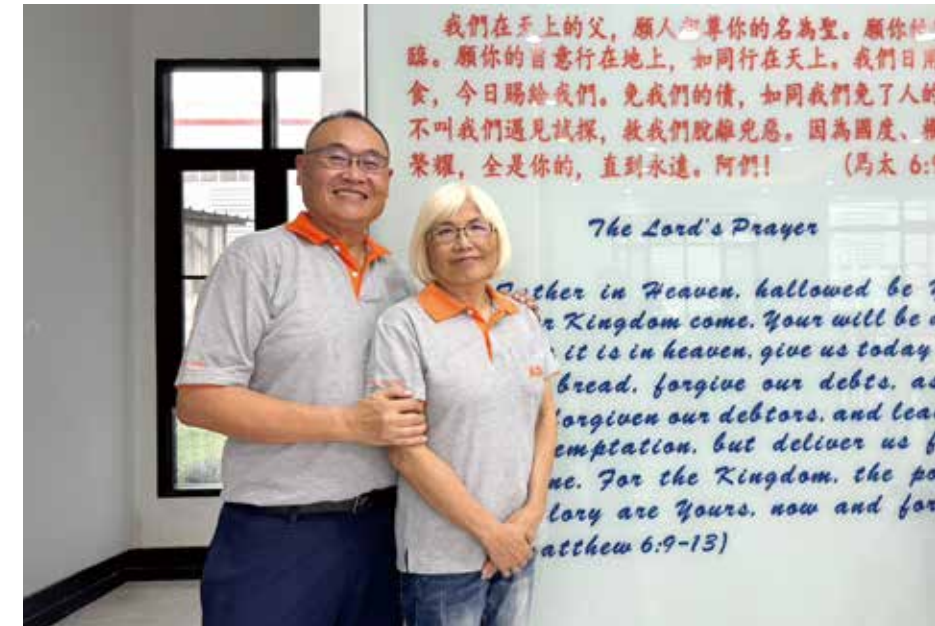 我們在天上的父，願人都尊你的名為聖。願你
臨。願你的旨意行在地上，如同行在天上。我們日用
食，今日賜給我們。免我們的債，如同我們免了人的
不叫我們遇見試探，救我們脫離兇惡。因為國度、權
榮耀，全是你的，直到永遠。阿們! (馬太 6:9
The Lord's Prayer
Father in Heaven, hallowed be
Kingdom come, Your will be
it is in heaven, give us today
bread, forgive our debts, as
forgiven our debtors, and lea
temptation, but deliver us f
For the Kingdom, the po
glory are Yours, now and for
Matthew 6:9-13)